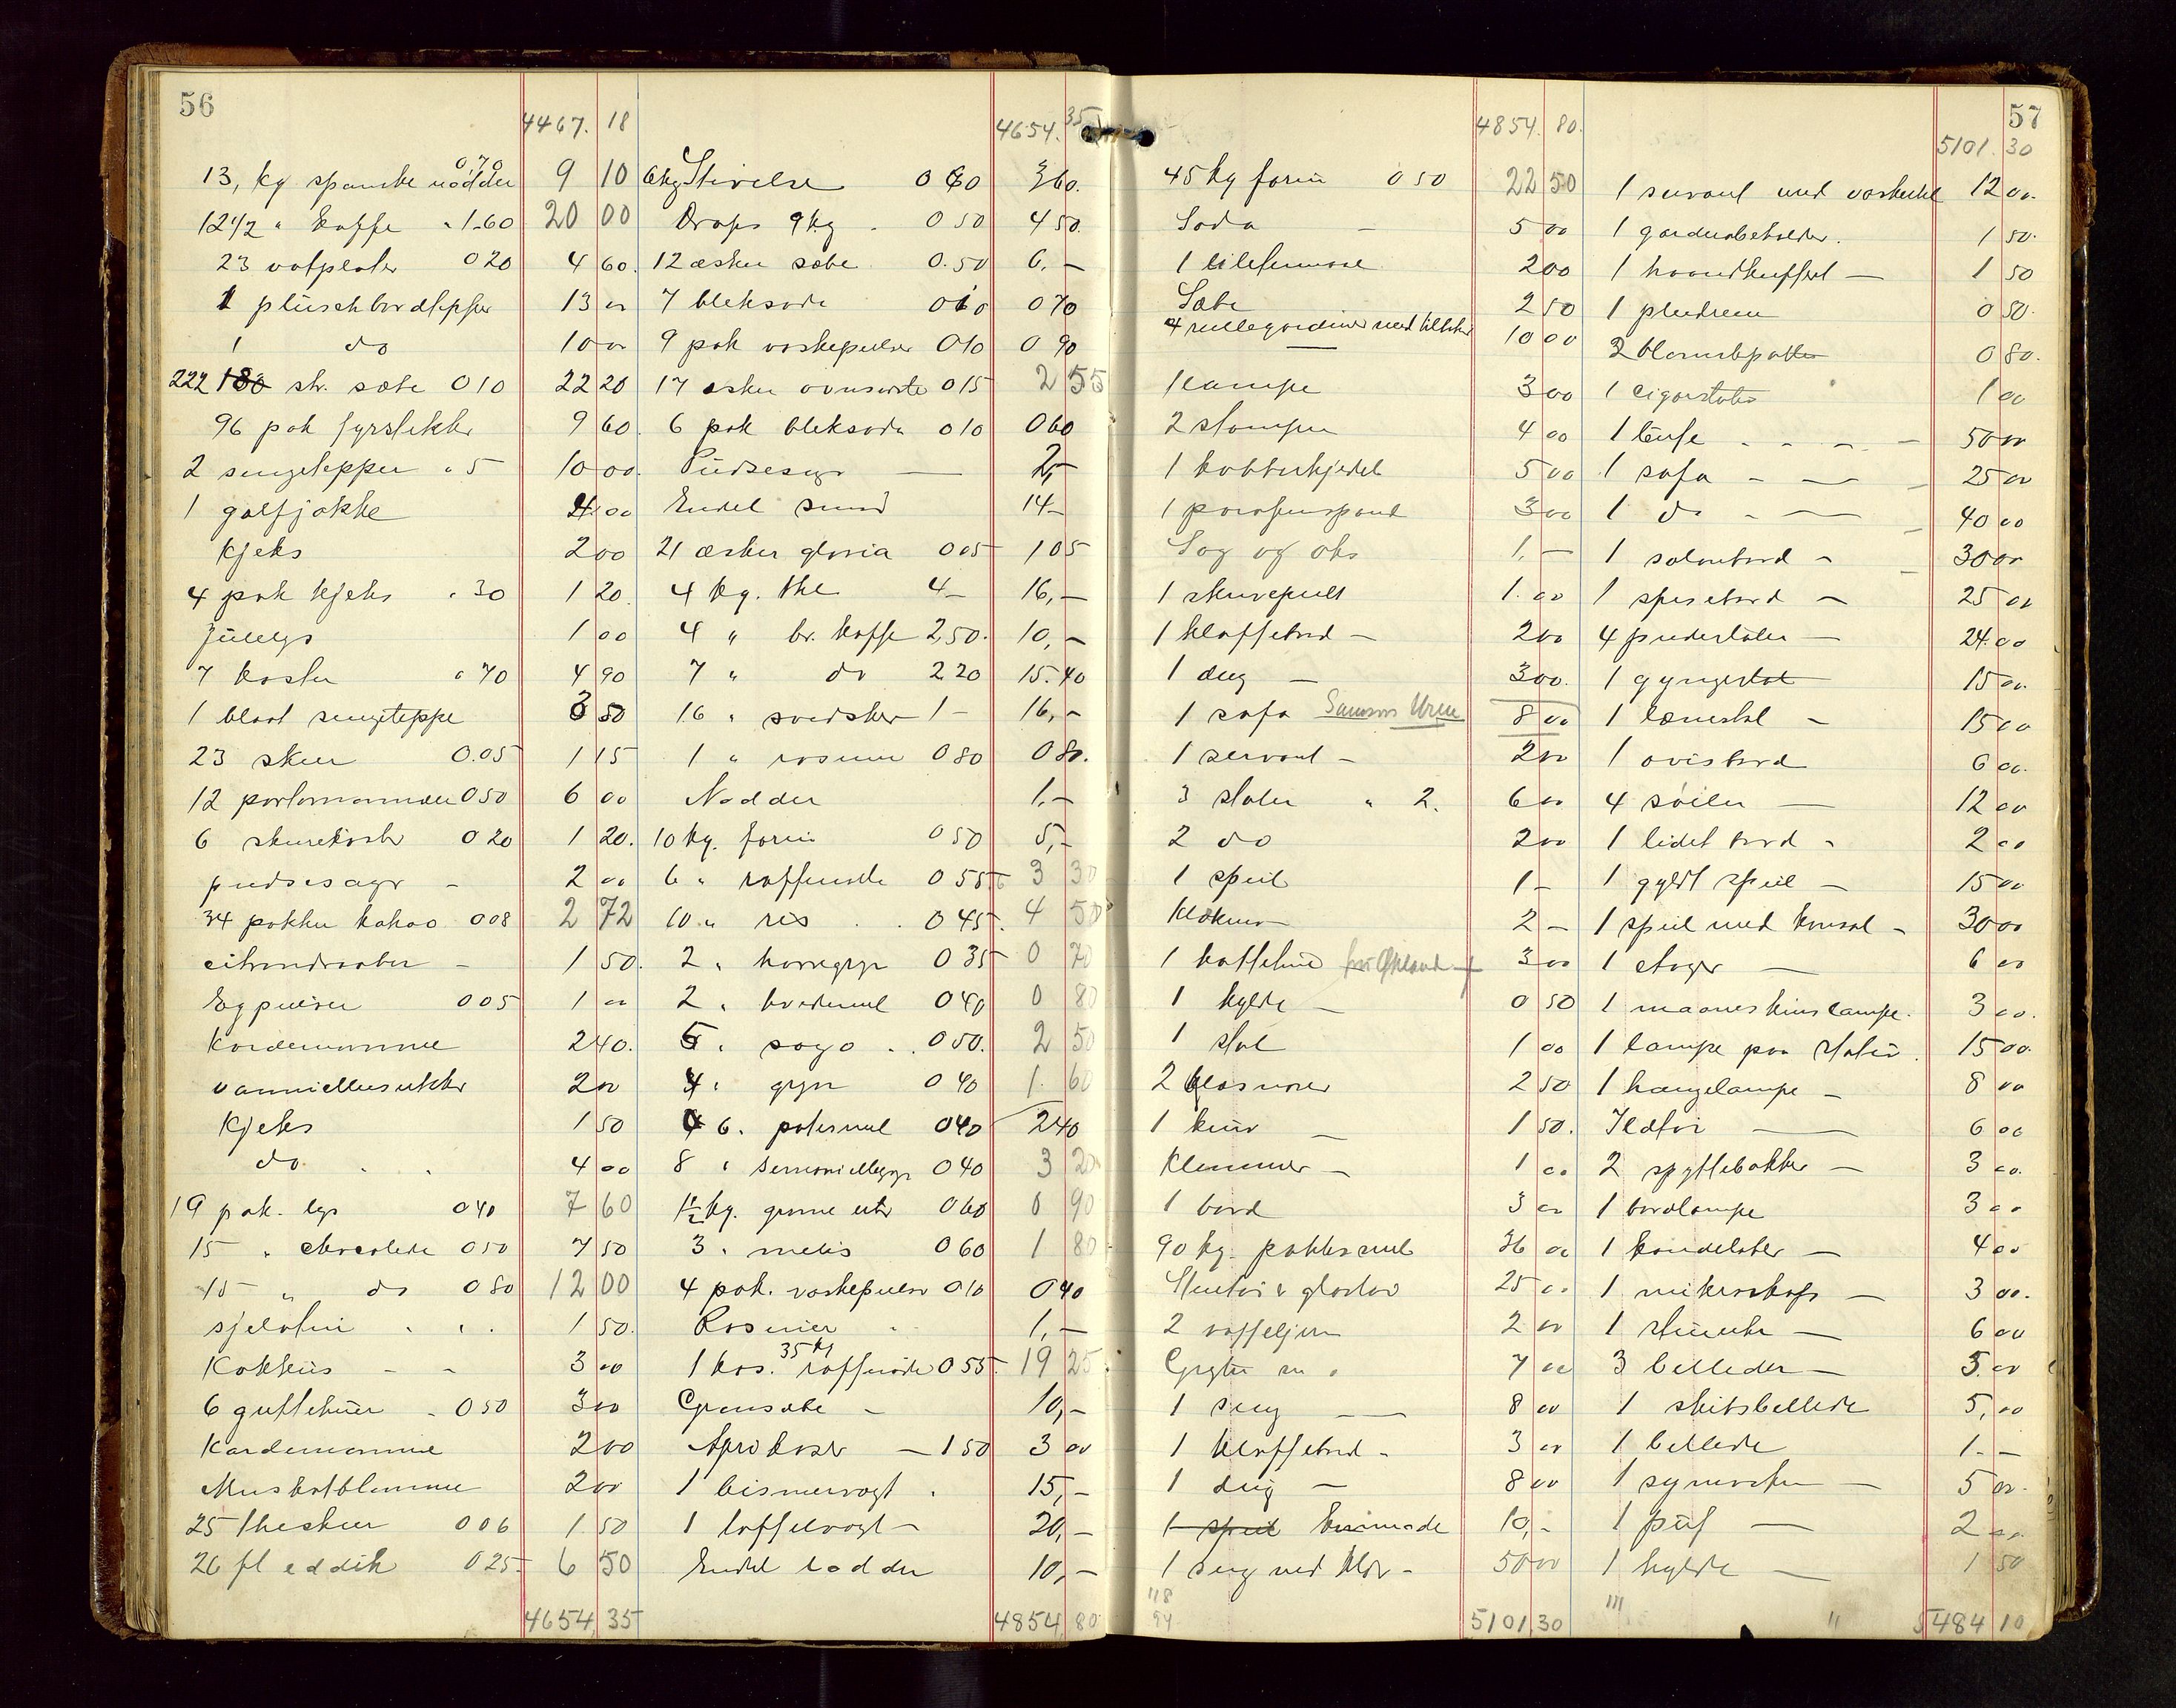 56
4467. 18
13, kg. spanske nødder 0 70 9 10
12 1/2 " kaffe " 1.60 20 00
23 vofplater 0 20 4 60.
1 plüschbordteppe 13 00
1 do 10 00
222 180 st. sæbe 0 10 22 20
96 pak fyrstikker 9 60.
2 sengetepper " 5 10 00.
1 golfjakke 4 00
Kjeks 2 00
4 pak kjeks " 30 1 20.
Julelys 1 00
7 koster " 70 4 90
1 blaat sengeteppe 3 50
23 skeer 0.05 1 15
12 portomonnæer 0 50 6 00
6 skurekoster 0 20 1 20.
pudsesager - 2 00
34 pakker kakao 0 08 2 72
citrondraaber - 1 50.
Eggpulver 0 05 1 00
Kardemomme 2 40.
vanniellesukker 2 00
Kjeks 1 50
do. 4 00
19 pak. lys 0 40 7 60
15 " chocolade 0 50 7 50
15 " do 0 80 12 00
sjelatin 1 50.
Kokkus - - 3 00
6 guttehuer - 0 50 3 00
Kardemomme 2 00
Muskatblomme 2 00
25 theskeer 0 06 1 50
26 fl eddik 0 25 6 50
4654 35
4654. 35
6 kg Stivelse 0 60 3 60.
Drops 9 kg - 0 50 4 50.
12 æsker sæbe 0.50 6. -
7 bleksoda 0 10 0 70
9 pak vaskepulver 0 10 0 90
17 æsker ovnsverte 0 15 2 55
6 pak bleksoda 0 10 0 60
Pudsesager - 2, -
Endel smaa 14 -
21 æsker gloria 0 05 1 05
4 kg. the 4 - 16, -
4 " br. kaffe 2,50. 10, -
7 " do 2 20 15.40
16 " svedsker 1 - 16, -
1 " rosiner 0 80 0 80.
Nødder 1, -
10 kg. farin 0 50 5, -
6 " raffinade 0 55 3 30
10 " ris 0 45. 4 50
2 " havregryn 0 35 0 70
2 " hvedemel 0 40 0 80
5 " sago 0 50. 2 50
4 " gryn 0 40 1. 60
6. potetmel 0 40 2 40
8 " semouliegryn 0 40 3 20
1 1/2 kg. grønne erter 0 60 0 90
3 " melis 0 60 1 80
4 pak. vaskepulver 0 10 0 40
Rosiner 1, -
1 kas. 35 kg raffinade 0 55. 19 25
Grønsæbe - 10, -
Aprikoser - 1 50 3 00
1 bismervægt 15, -
1 taffelvægt - 20, -
Endel lodder 10, -
4854 80
4854. 80.
45 kg farin 0 50 22 50
Soda - 5 00
1 2 00
Sæbe 2 50
4 rullegardiner med tilbehør 10 00
1 lampe 3 00
2 stamper 4 00
1 kobberkjedel 5 00
1 parafinspand 3 00
Sag og øks 1, -
1 skrivepult 1. 00
1 klaffebord - 2 00
1 dug - 3 00.
1 sofa 8 00
1 servant - 2 00
3 stoler " 2. 6 00
2 do 2 00
1 speil 1 -
Klokker 2 -
1 3 00
1 hylde - 0 50
1 stol 1 00
2 2 50
1 kurv - 1 50.
Klemmer - 1 00
1 bord 3 00
90 kg. potetesmel 36 00
Stentøi & glastøi 25 00
2 vaffeljern 2 00
Gryter m. " 7 00
1 seng - 8 00
1 klaffebord - 3 00
1 dug - 8 00
1 speil 10, -
1 seng med klær - 50 00
118
94
5101 30
57
5101. 30
1 servant med vaskestel 12 00.
1 garderobeholder. 1 50.
1 haandkuffert - 1 50
1 pleidreem 0 50.
2 blomstpotter 0 80.
1 cigarstativ 1 00
1 50 00
1 sofa - - 25 00
1 do - - 40 00
1 salonbord - 30 00
1 spisebord - 25 00
4 pinderstoler - 24.00
1 gyngestol 15 00.
1 lænestol - 15 00
1 avisbord 6 00.
4 søiler - 12 00
1 lidet bord - 2 00
1 gyldt speil - 15 00
1 speil med konsol - 30 00
1 etager - 6 00
1 maaneskinslampe. 3 00.
1 lampe paa stativ. 15 00.
1 hængelampe - 8 00
Ildtøi - 6 00
2 spyttebakker - 3 00.
1 bordlampe 3 00
1 kandelaber - 4 00
1 mikroskop - 3 00.
1 - 6 00
3 billeder - 5. 00
1 skibsbillede 5, 00
1 billede 1. -
1 symaskin - 5 00.
1 puf - 2 00
1 hylde - 1 50
111 "
5484 10